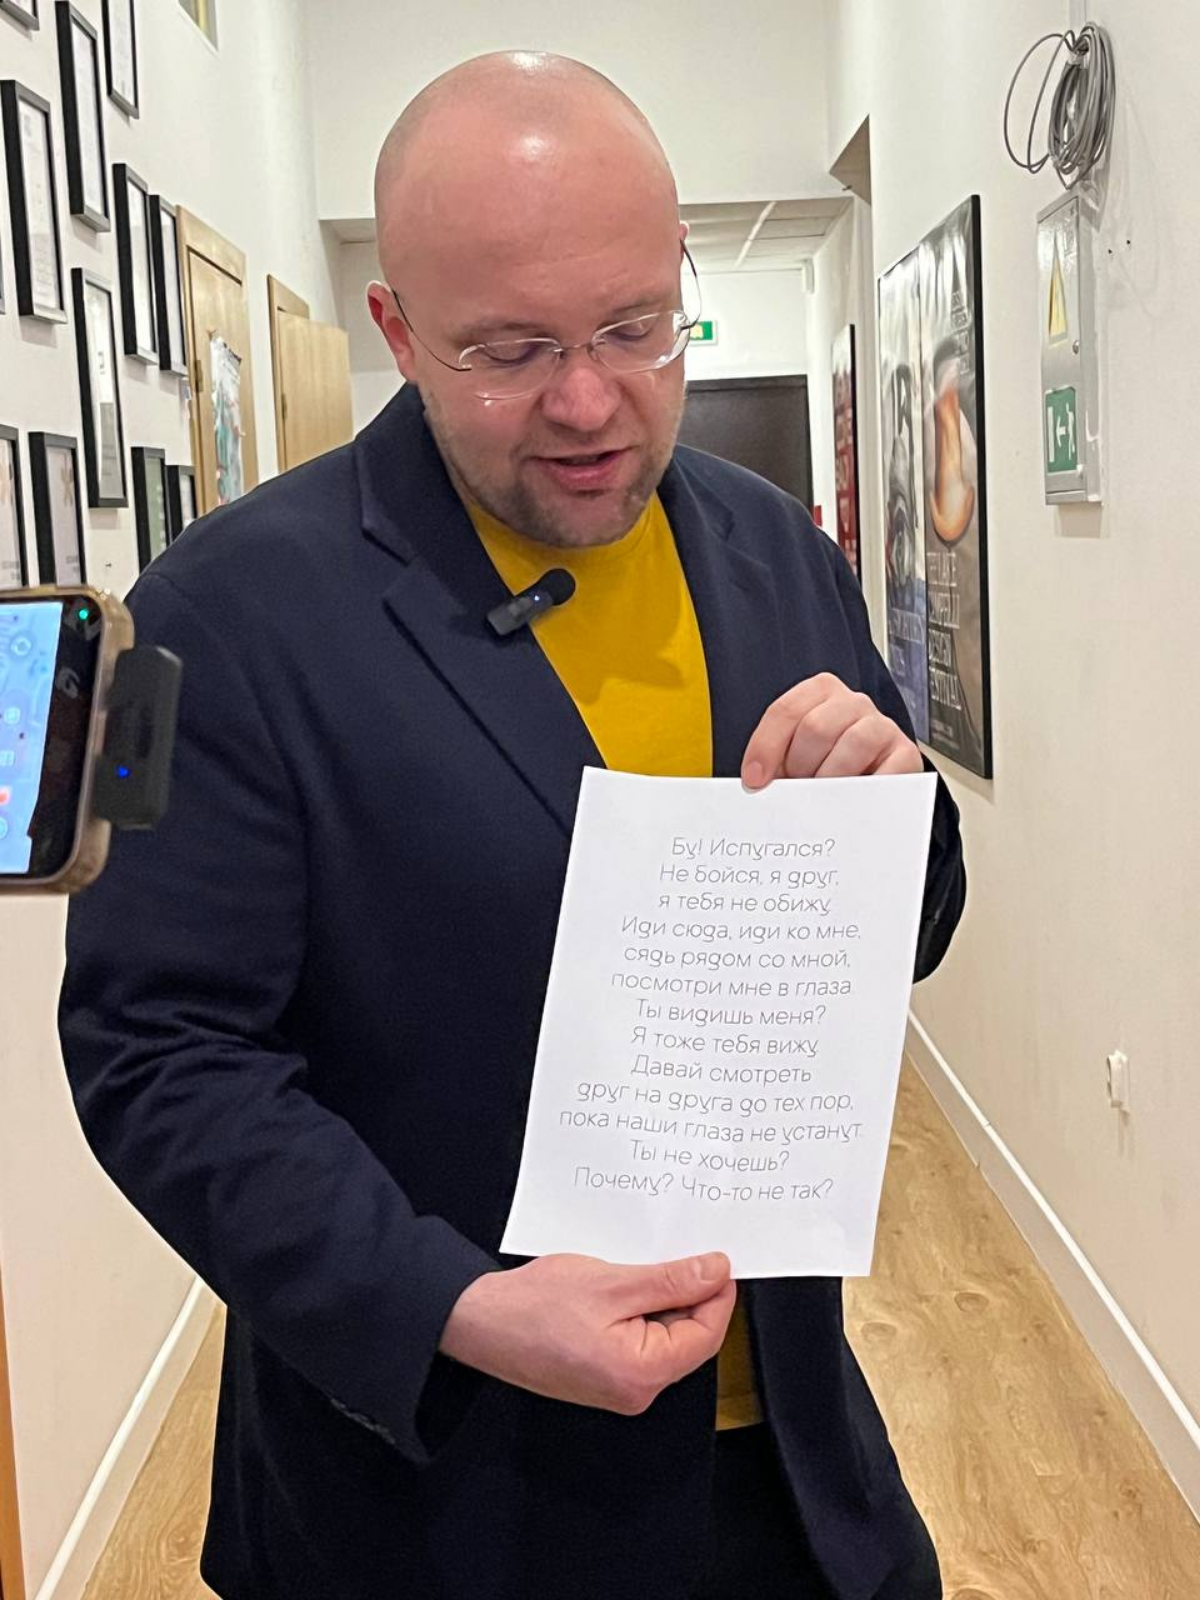 Бу! Испугался?
Не бойся, я друг,
я тебя не обижу
Иди сюда, иди ко мне,
сядь рядом со мной,
посмотри мне в глаза
Ты видишь меня?
Я тоже тебя вижу
Давай смотреть
друг на друга до тех пор,
пока наши глаза не устанут
Ты не хочешь?
Почему? Что-то не так?